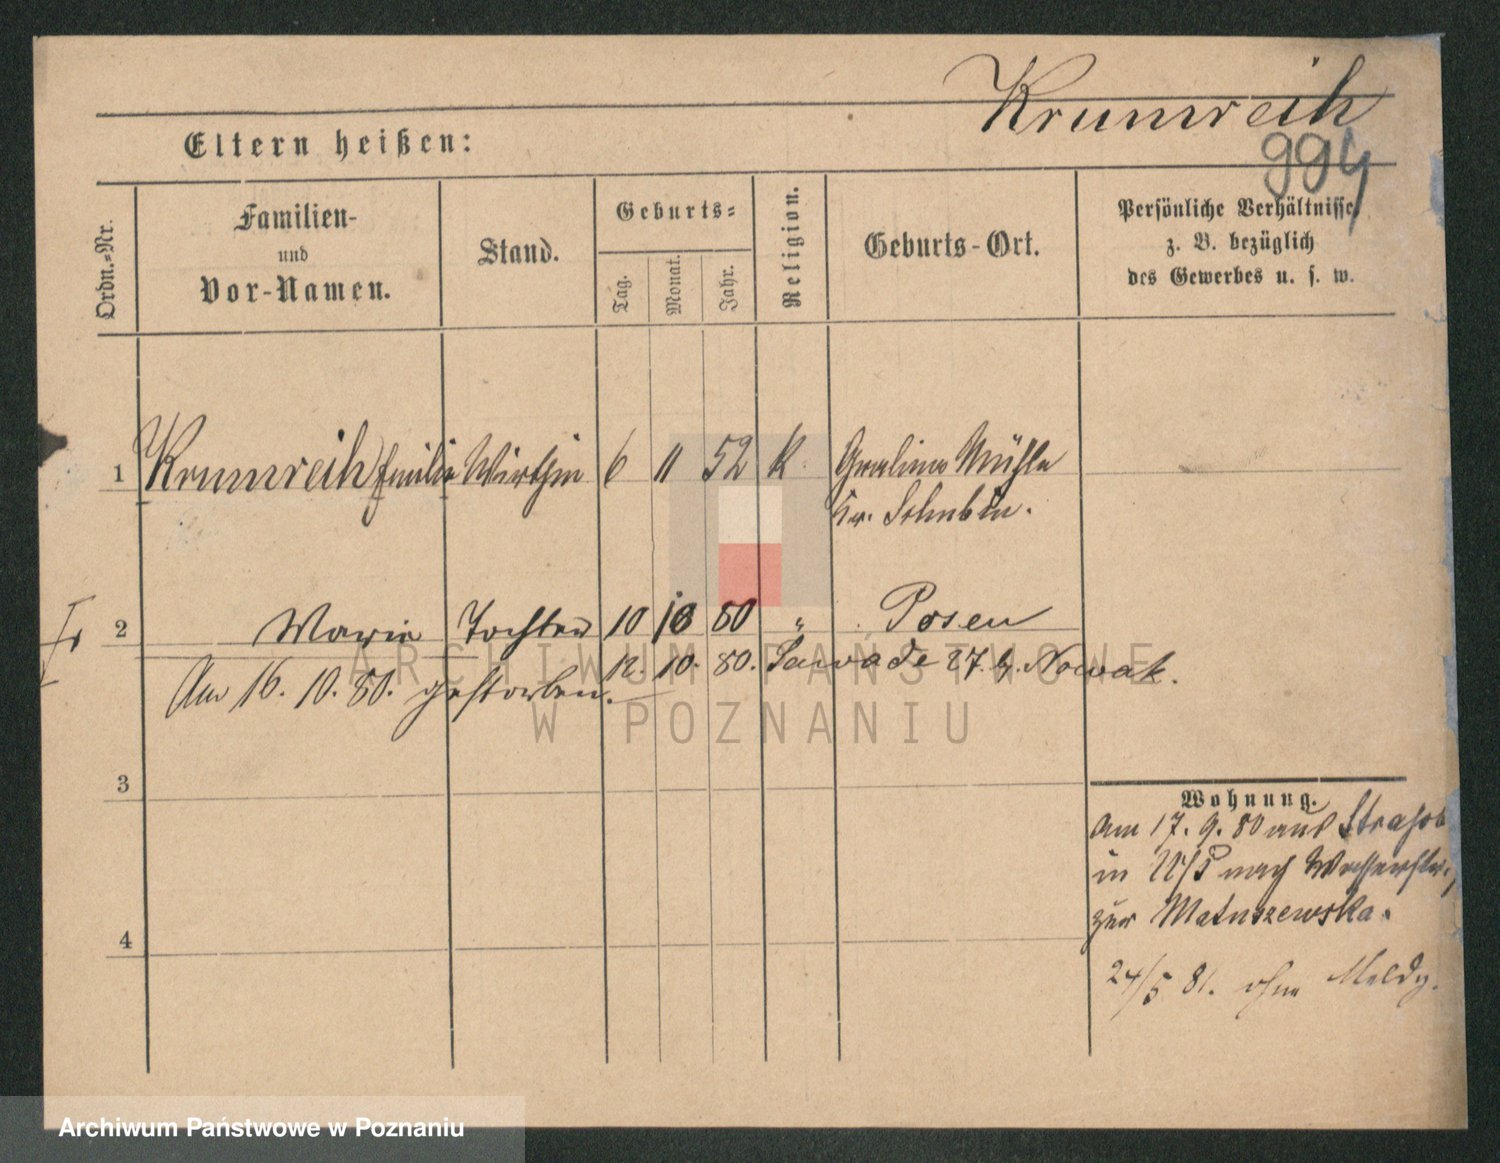 Krumreih
994
Eltern heißen:
Ordn.-Nr.
Familien-
und
Vor-Namen.
Stand.
Geburts-
Tag.
Monat.
Jahr.
Religion.
Geburts-Ort.
Persönliche Verhältnisse
z. B. bezüglich
des Gewerbes u. s. w.
1 Krumreih Emilie Wirthin 6 11 52 k. Gralina Mühle
Kr. Schubin.
2 Marie Tochter 10 10 80 " Posen
12. 10. 80. Sawade 27. b. Nowak.
Am 16. 10. 80. gestorben.
3
4
Wohnung.
Am 17. 9. 80 aus
in nach Wasserstr.
zur Matuszewska.
24/5 81. ohne Meldg.
ARCHIWUM PAŃSTWOWE
W POZNANIU
Archiwum Państwowe w Poznaniu